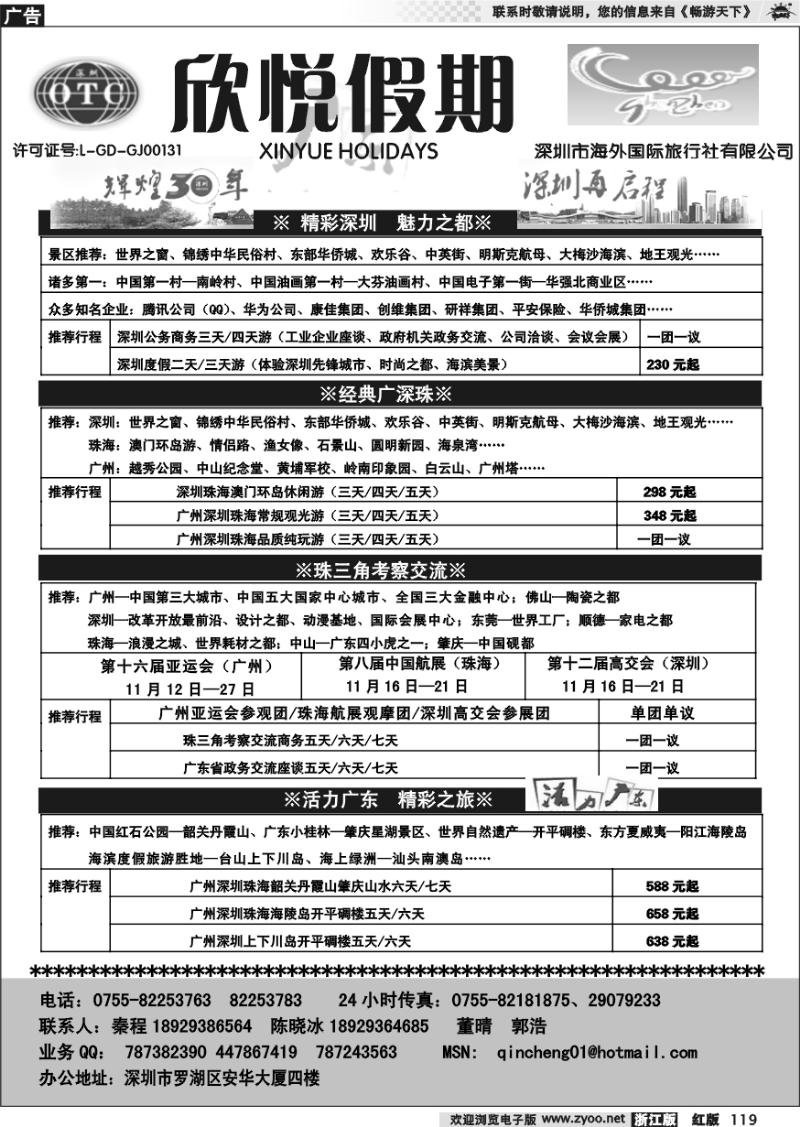 广告
联系时敬请说明，您的信息来自《畅游天下》
深圳
OTC
欣悦假期
XINYUE HOLIDAYS
许可证号:L-GD-GJ00131
深圳市海外国际旅行社有限公司
辉煌30年
深圳再启程
※ 精彩深圳 魅力之都※
景区推荐：世界之窗、锦绣中华民俗村、东部华侨城、欢乐谷、中英街、明斯克航母、大梅沙海滨、地王观光……
诸多第一：中国第一村—南岭村、中国油画第一村—大芬油画村、中国电子第一街—华强北商业区……
众多知名企业：腾讯公司（QQ）、华为公司、康佳集团、创维集团、研祥集团、平安保险、华侨城集团……
推荐行程 深圳公务商务三天/四天游（工业企业座谈、政府机关政务交流、公司洽谈、会议会展） 一团一议
深圳度假二天/三天游（体验深圳先锋城市、时尚之都、海滨美景） 230 元起
※经典广深珠※
推荐：深圳：世界之窗、锦绣中华民俗村、东部华侨城、欢乐谷、中英街、明斯克航母、大梅沙海滨、地王观光……
珠海：澳门环岛游、情侣路、渔女像、石景山、圆明新园、海泉湾……
广州：越秀公园、中山纪念堂、黄埔军校、岭南印象园、白云山、广州塔……
推荐行程 深圳珠海澳门环岛休闲游（三天/四天/五天） 298 元起
广州深圳珠海常规观光游（三天/四天/五天） 348 元起
广州深圳珠海品质纯玩游（三天/四天/五天） 一团一议
※珠三角考察交流※
推荐：广州—中国第三大城市、中国五大国家中心城市、全国三大金融中心；佛山—陶瓷之都
深圳—改革开放最前沿、设计之都、动漫基地、国际会展中心；东莞—世界工厂；顺德—家电之都
珠海—浪漫之城、世界耗材之都；中山—广东四小虎之一；肇庆—中国砚都
第十六届亚运会（广州） 第八届中国航展（珠海） 第十二届高交会（深圳）
11 月 12 日—27 日 11 月 16 日—21 日 11 月 16 日—21 日
推荐行程 广州亚运会参观团/珠海航展观摩团/深圳高交会参展团 单团单议
珠三角考察交流商务五天/六天/七天 一团一议
广东省政务交流座谈五天/六天/七天 一团一议
※活力广东 精彩之旅※
活力广东
推荐：中国红石公园—韶关丹霞山、广东小桂林—肇庆星湖景区、世界自然遗产—开平碉楼、东方夏威夷—阳江海陵岛
海滨度假旅游胜地—台山上下川岛、海上绿洲—汕头南澳岛……
推荐行程 广州深圳珠海韶关丹霞山肇庆山水六天/七天 588 元起
广州深圳珠海海陵岛开平碉楼五天/六天 658 元起
广州深圳上下川岛开平碉楼五天/六天 638 元起
电话：0755-82253763 82253783 24 小时传真：0755-82181875、29079233
联系人：秦程 18929386564 陈晓冰 18929364685 董晴 郭浩
业务 QQ： 787382390 447867419 787243563 MSN: qincheng01@hotmail.com
办公地址：深圳市罗湖区安华大厦四楼
欢迎浏览电子版 www.zyoo.net 浙江版 红版 119